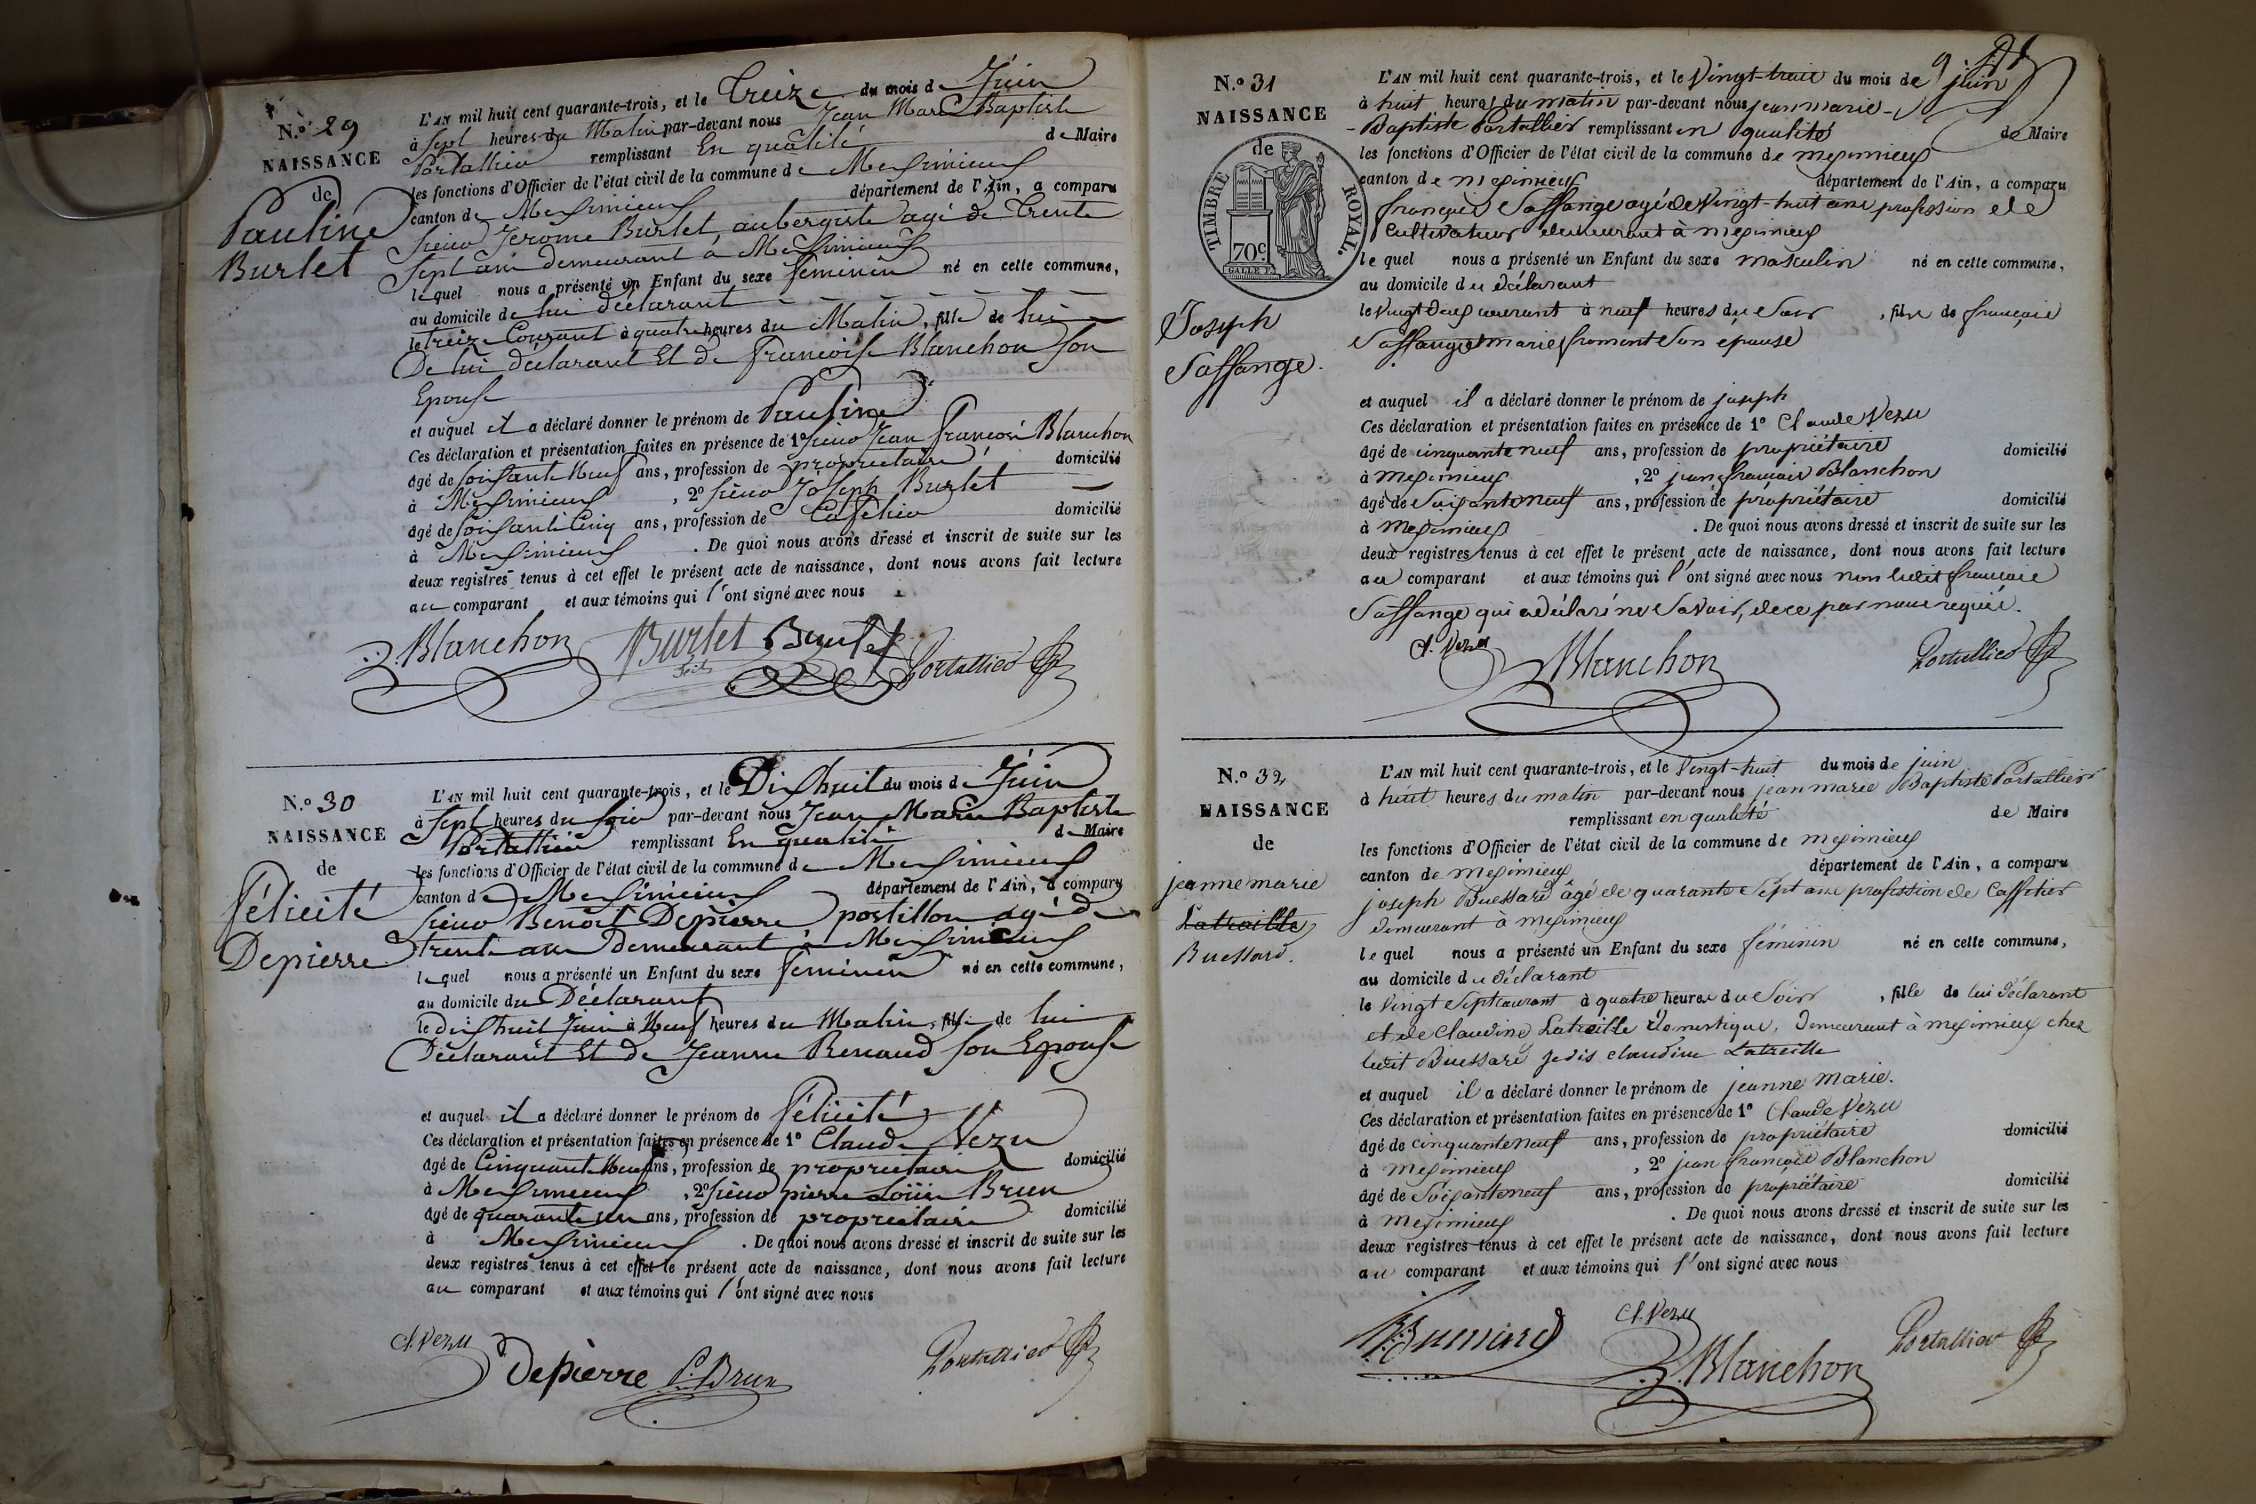 N.o 29
NAISSANCE
de
Pauline
Burlet
L'AN mil huit cent quarante-trois, et le Treize du mois de Juin
à Sept heures du Matin par-devant nous Jean Marie Baptiste
Portallier remplissant En qualité de Maire
les fonctions d'Officier de l'état civil de la commune de Meximieux
canton de Meximieux département de l'Ain, a comparu
Sieur Jerome Burlet, aubergiste agé de Trente
Sept ans demeurant à Meximieux
lequel nous a présenté un Enfant du sexe feminin né en cette commune,
au domicile de lui déclarant
le treize Courant à quatre heures du Matin, fille de lui
De lui déclarant Et de Francoise Blanchon Son
Epouse
et auquel il a déclaré donner le prénom de Pauline
Ces déclaration et présentation faites en présence de 1o Sieur Jean François Blanchon
âgé de Soixante Neuf ans, profession de propriétaire domicilié
à Meximieux, 2o Sieur Joseph Burlet
âgé de Soixante Cinq ans, profession de Cafetier domicilié
à Meximieux. De quoi nous avons dressé et inscrit de suite sur les
deux registres tenus à cet effet le présent acte de naissance, dont nous avons fait lecture
au comparant et aux témoins qui l'ont signé avec nous
Blanchon Burlet Burlet Portallier
N.o 30
NAISSANCE
de
Félicité
Depierre
L'AN mil huit cent quarante-trois, et le Dix huit du mois de Juin
à Sept heures du Soir par-devant nous Jean Marie Baptiste
Portallier remplissant En qualité de Maire
les fonctions d'Officier de l'état civil de la commune de Meximieux
canton de Meximieux département de l'Ain, a comparu
Sieur Benoit Depierre postillon agé de
trente ans demeurant à Meximieux
lequel nous a présenté un Enfant du sexe feminin né en cette commune,
au domicile du Déclarant
le Dix huit Juin à Neuf heures du Matin, fille de lui
Déclarant Et de Jeanne Renaud Son Epouse
et auquel il a déclaré donner le prénom de Félicité
Ces déclaration et présentation faites en présence de 1o Claude Vezu
âgé de Cinquante Neuf ans, profession de propriétaire domicilié
à Meximieux, 2o Sieur pierre Louis Brun
âgé de quarante un ans, profession de propriétaire domicilié
à Meximieux. De quoi nous avons dressé et inscrit de suite sur les
deux registres tenus à cet effet le présent acte de naissance, dont nous avons fait lecture
au comparant et aux témoins qui l'ont signé avec nous
Cl. Vezu Depierre L. Brun Portallier
N.o 31
NAISSANCE
de
TIMBRE ROYAL.
70c
Joseph
Saffange.
L'AN mil huit cent quarante-trois, et le Vingt-trois du mois de juin
à huit heures du matin par-devant nous jean marie
Baptiste Portallier remplissant en qualité de Maire
les fonctions d'Officier de l'état civil de la commune de meximieux
canton de meximieux département de l'Ain, a comparu
françois Saffange agé de Vingt-huit ans profession de
Cultivateur demeurant à meximieux
lequel nous a présenté un Enfant du sexe masculin né en cette commune,
au domicile du déclarant
le vingt deux courant à neuf heures du Soir, fils de françois
Saffange et marie froment Son épouse
et auquel il a déclaré donner le prénom de joseph
Ces déclaration et présentation faites en présence de 1o Claude Vezu
âgé de cinquante neuf ans, profession de propriétaire domicilié
à meximieux, 2o jean françois Blanchon
âgé de Soixante neuf ans, profession de propriétaire domicilié
à meximieux. De quoi nous avons dressé et inscrit de suite sur les
deux registres tenus à cet effet le présent acte de naissance, dont nous avons fait lecture
au comparant et aux témoins qui l'ont signé avec nous non ledit françois
Saffange qui a déclaré ne Savoir, de ce par nous requis.
Cl. Vezu Blanchon Portallier
N.o 32
NAISSANCE
de
jeanne marie
Latreille
Buessard.
L'AN mil huit cent quarante-trois, et le Vingt-huit du mois de juin
à huit heures du matin par-devant nous jean marie Baptiste Portallier
remplissant en qualité de Maire
les fonctions d'Officier de l'état civil de la commune de meximieux
canton de meximieux département de l'Ain, a comparu
joseph Buessard âgé de quarante Sept ans profession de Caffetier
demeurant à meximieux
lequel nous a présenté un Enfant du sexe féminin né en cette commune,
au domicile du déclarant
le Vingt Sept courant à quatre heures du Soir, fille de lui déclarant
et de Claudine Latreille domestique, demeurant à meximieux chez
ledit Buessard je dis claudine Latreille
et auquel il a déclaré donner le prénom de jeanne marie.
Ces déclaration et présentation faites en présence de 1o Claude Vezu
âgé de cinquante neuf ans, profession de propriétaire domicilié
à meximieux, 2o jean françois Blanchon
âgé de Soixante neuf ans, profession de propriétaire domicilié
à meximieux. De quoi nous avons dressé et inscrit de suite sur les
deux registres tenus à cet effet le présent acte de naissance, dont nous avons fait lecture
au comparant et aux témoins qui l'ont signé avec nous
Cl. Vezu Blanchon Portallier